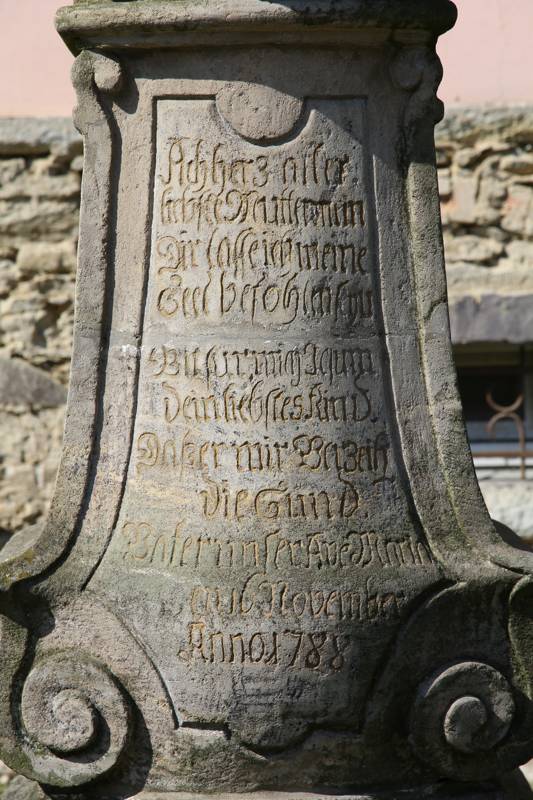 Ach herz aller
liebste Mutter mein
Dir lasse ich meine
Seel befohlen sey
Bitt fur mich Jesum
dein liebstes Kind.
Das er mir Verzeih
die Sünd.
Vater unser Ave Maria
November
Anno 1788